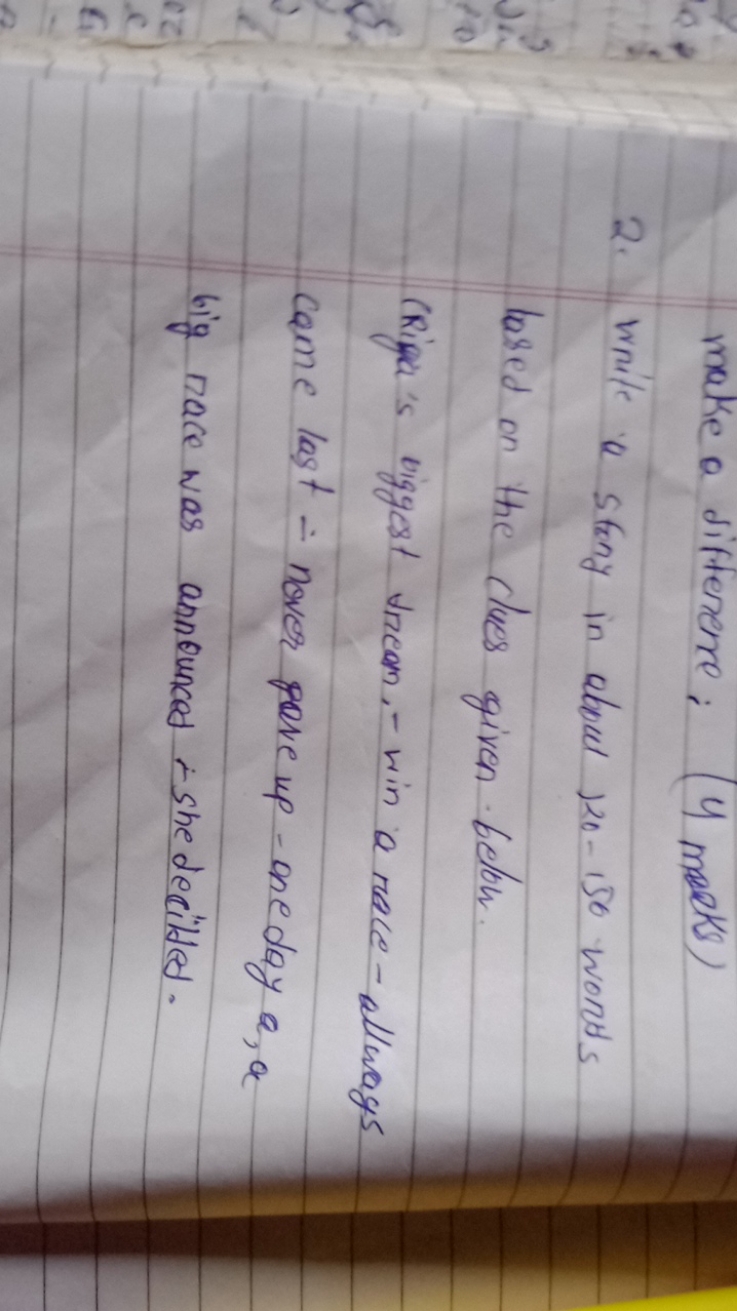 make a difference; (4 marks)
2. write a story in about 120-150 words
based on the clues given below.
(Riya's biggest dream, - win a race - allways
came last - never gave up - one day a, a
big race was announced - she decided.